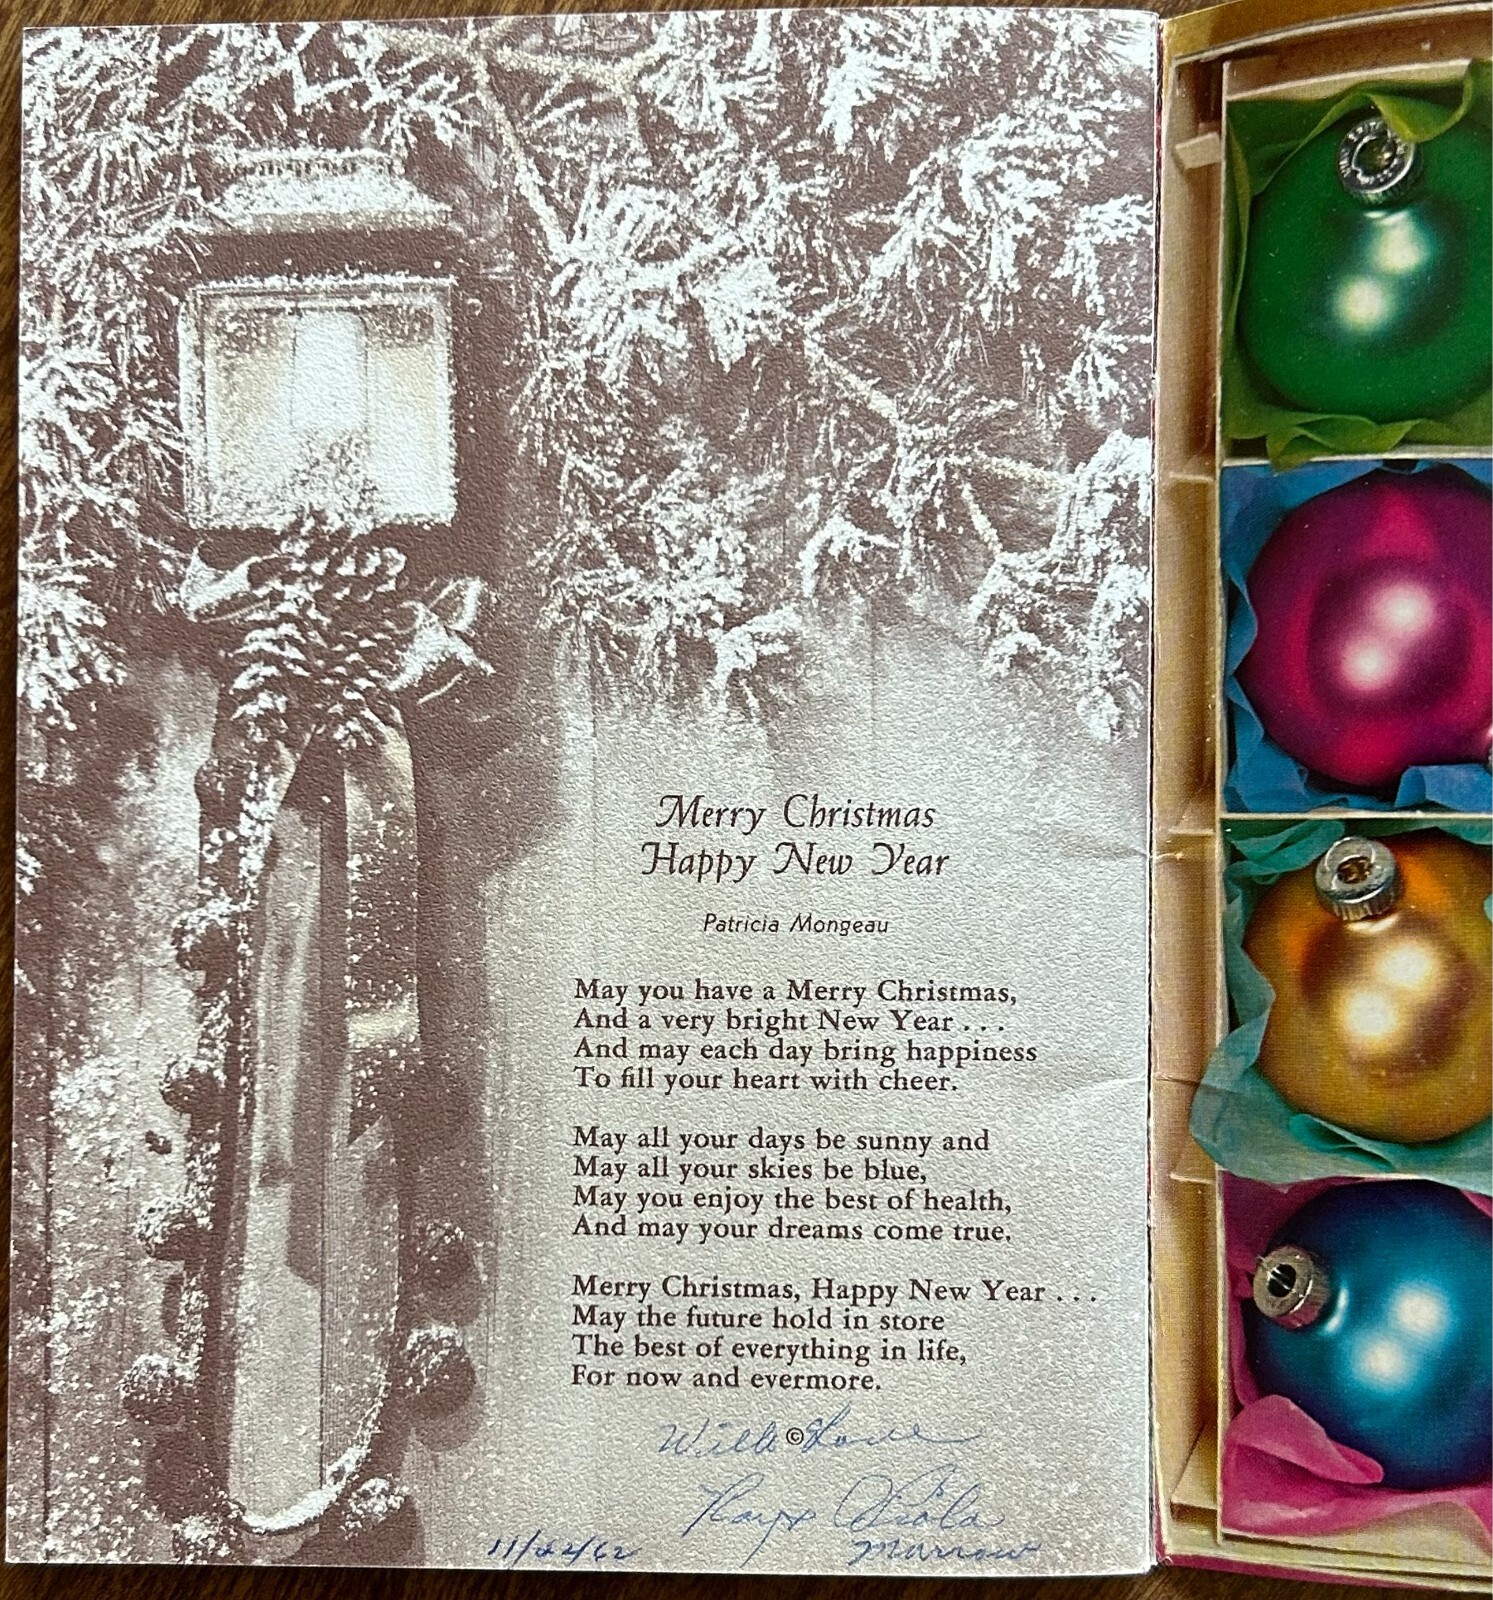 Merry Christmas
Happy New Year
Patricia Mongeau
May you have a Merry Christmas,
And a very bright New Year . . .
And may each day bring happiness
To fill your heart with cheer.
May all your days be sunny and
May all your skies be blue,
May you enjoy the best of health,
And may your dreams come true.
Merry Christmas, Happy New Year . . .
May the future hold in store
The best of everything in life,
For now and evermore.
©
With Love
Viola
11/22/62 Marrow